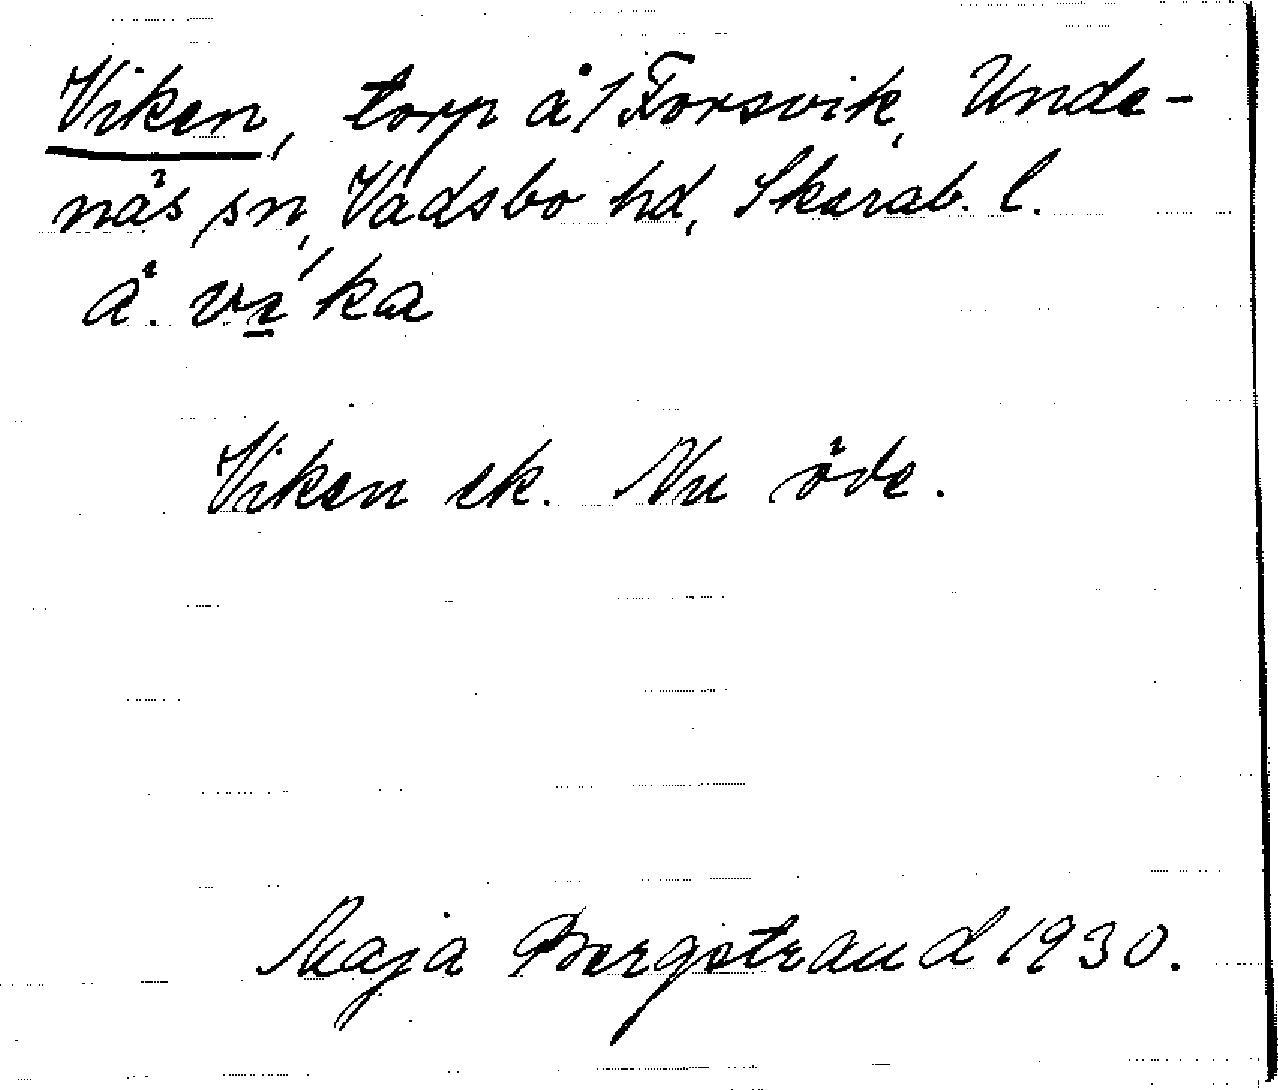 Viken, torp å/Forsvik, Unde-
näs sn, Vadsbo hd, Skarab. l.
ä. vi̲´ka
Viken ek. Nu öde.
Maja Bergstrand 1930.